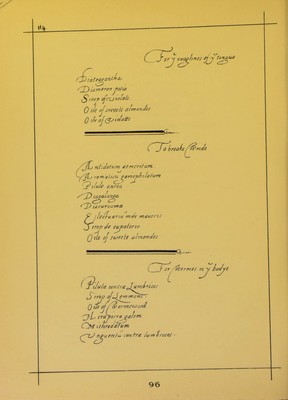 114
For yͤ roughnes of yͤ tongue
Diatragantha
Diameron
Sirop of Violets
Oile of sweete almondes
Oile of Violets
To breake Winde
Antidotum
Aromaticū gariophilatum
Pilule
Diagalanga
Diacurcuma
Electuariū inde maioris
Sirop de eupatorio
Oile of sweete almondes
For Wormes in yͤ bodye
Pilula contra Lumbricos
Sirop of Lemmons
Oile of Wormewood
Hiera picra galeni
Mithredatum
Unguentū contra lumbricos
96